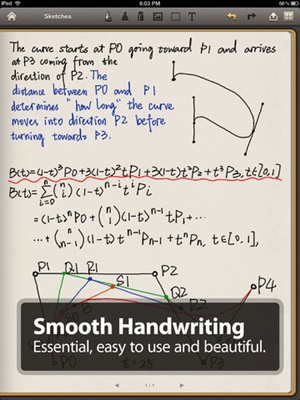 iPad
6:03 PM
Sketches
The curve starts at P0 going toward P1 and arrives
at P3 coming from the
direction of P2. The
distance between P0 and P1
determines "how long" the curve
moves into direction P2 before
turning towards P3.
B(t)=(1-t)³P₀+3(1-t)²tP₁+3(1-t)t²P₂+t³P₃, t∈[0,1]
B(t)=∑ⁿᵢ₌₀(ⁿᵢ)(1-t)ⁿ⁻ⁱtⁱPᵢ
=(1-t)ⁿP₀+(ⁿ₁)(1-t)ⁿ⁻¹tP₁+⋯
⋯+(ⁿₙ₋₁)(1-t)tⁿ⁻¹Pₙ₋₁+tⁿPₙ, t∈[0,1],
P1 Q1 R1 P2
S1
Q2 P4
Smooth Handwriting
Essential, easy to use and beautiful.
P0
P3
1/1